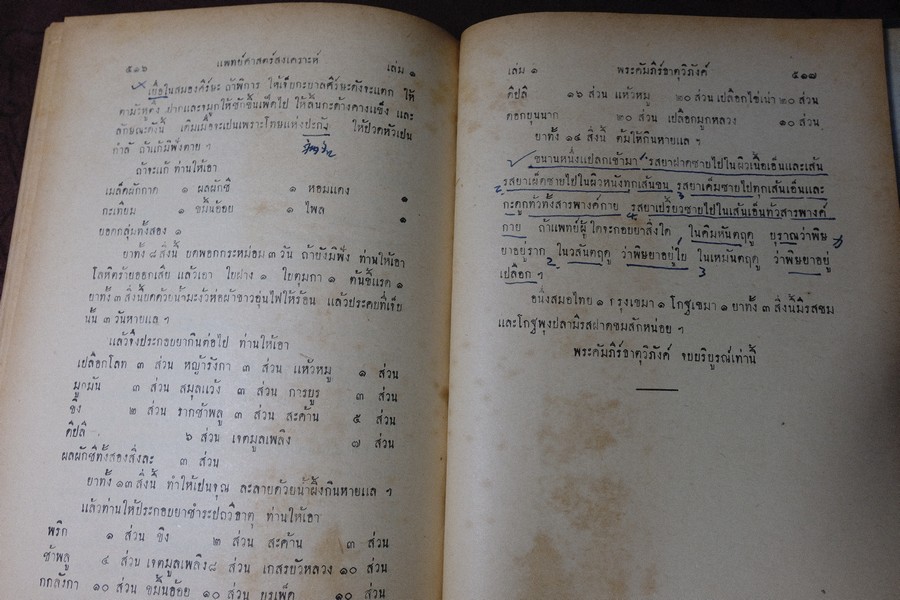 ๕๑๖ แพทย์ศาสตร์สงเคราะห์ เล่ม ๑
เยื่อในสมองศีร์ษะ ถ้าพิการ ให้เจ็บกะบาลศีร์ษะดังจะแตก ให้
ตามัวหูตึง ปากและจมูกให้ชักขึ้นเฟ็ดไป ให้ลิ้นกะด้างคางแข็ง และ
ลักษณะดังนี้ เดิมเมื่อจะเป็นเพราะโทษแห่งปะกัง ให้ปวดหัวเปน
กำลัง ถ้าแก้มิฟังตาย ฯ
ถ้าจะแก้ ท่านให้เอา
เมล็ดผักกาด ๑ ผลผักชี ๑ หอมแดง ๑
กะเทียม ๑ ขมิ้นอ้อย ๑ ไพล ๑
ยอดกลุ่มทั้งสอง ๑
ยาทั้ง ๘ สิ่งนี้ บดพอกกระหม่อม ๓ วัน ถ้ายังมิฟัง ท่านให้เอา
โลหิตร้ายออกเสีย แล้วเอา ใบฝาง ๑ ใบตุมกา ๑ ต้นขี้แรด ๑
ยาทั้ง ๓ สิ่งนี้บดด้วยน้ำมะงั่วห่อผ้าขาวอุ่นไฟให้ร้อน แล้วประคบที่เจ็บ
นั้น ๓ วันหายแล ฯ
แล้วจึงประกอบยากินต่อไป ท่านให้เอา
เปลือกโลท ๓ ส่วน หญ้ารังกา ๓ ส่วน แห้วหมู ๑ ส่วน
มูกมัน ๓ ส่วน สมุลแว้ง ๓ ส่วน การบูร ๓ ส่วน
ขิง ๒ ส่วน รากช้าพลู ๓ ส่วน สะค้าน ๕ ส่วน
ดีปลี ๖ ส่วน เจตมูลเพลิง ๗ ส่วน
ผลผักชีทั้งสองสิ่งละ ๓ ส่วน
ยาทั้ง ๑๓ สิ่งนี้ ทำให้เปนจุณ ละลายด้วยน้ำผึ้งกินหายแล ฯ
แล้วท่านให้ประกอบยาชำระปถวีธาตุ ท่านให้เอา
พริก ๑ ส่วน ขิง ๒ ส่วน สะค้าน ๓ ส่วน
ช้าพลู ๔ ส่วน เจตมูลเพลิง ๘ ส่วน เกสรบัวหลวง ๑๐ ส่วน
กกลังกา ๑๐ ส่วน ขมิ้นอ้อย ๑๐ ส่วน บรเพ็ด ๑๐ ส่วน
เล่ม ๑ พระคัมภีร์ธาตุวิภังค์ ๕๑๗
ดีปลี ๑๖ ส่วน แห้วหมู ๒๐ ส่วน เปลือกไข่เน่า ๒๐ ส่วน
ดอกบุนนาก ๒๐ ส่วน เปลือกมูกหลวง ๑๐ ส่วน
ยาทั้ง ๑๔ สิ่งนี้ ต้มให้กินหายแล ฯ
ขนานหนึ่งแปลกเข้ามา รสยาฝาดซาบไปในผิวเนื้อเอ็นและเส้น
รสยาเผ็ดซาบไปในผิวหนังทุกเส้นขน รสยาเค็มซาบไปทุกเส้นเอ็นและ
กะดูกทั่วทั้งสารพางค์กาย รสยาเปรี้ยวซาบไปในเส้นเอ็นทั่วสารพางค์
กาย ถ้าแพทย์ผู้ใดจะกอบยาสิ่งใด ในคิมหันตฤดู บุราณว่าพิษ
ยาอยู่ราก ในวสันตฤดู ว่าพิษยาอยู่ใบ ในเหมันตฤดู ว่าพิษยาอยู่
เปลือก ฯ
อนึ่งสมอไทย ๑ กรุงเขมา ๑ โกฐเขมา ๑ ยาทั้ง ๓ สิ่งนี้มีรสขม
และโกฐพุงปลามีรสฝาดขมสักหน่อย ฯ
พระคัมภีร์ธาตุวิภังค์ จบบริบูรณ์เท่านี้